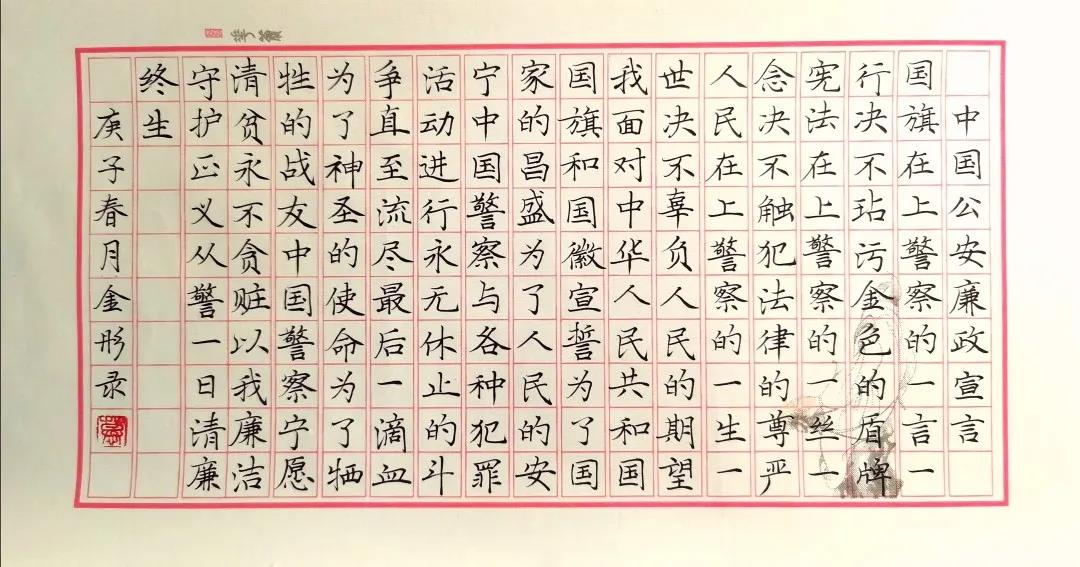 中国公安廉政宣言
国旗在上警察的一言一
行决不玷污金色的盾牌
宪法在上警察的一丝一
念决不触犯法律的尊严
人民在上警察的一生一
世决不辜负人民的期望
我面对中华人民共和国
国旗和国徽宣誓为了国
家的昌盛为了人民的安
宁中国警察与各种犯罪
活动进行永无休止的斗
争直至流尽最后一滴血
为了神圣的使命为了牺
牲的战友中国警察宁愿
清贫永不贪赃以我廉洁
守护正义从警一日清廉
终生
庚子春月金彤录